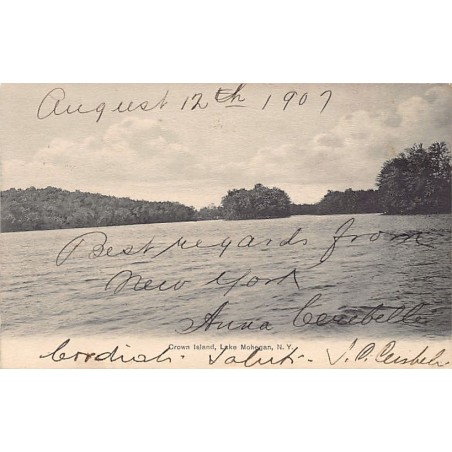 August 12th 1907
Best regards from
New York
Anna
Crown Island, Lake Mohegan, N. Y.
Cordiali Saluti